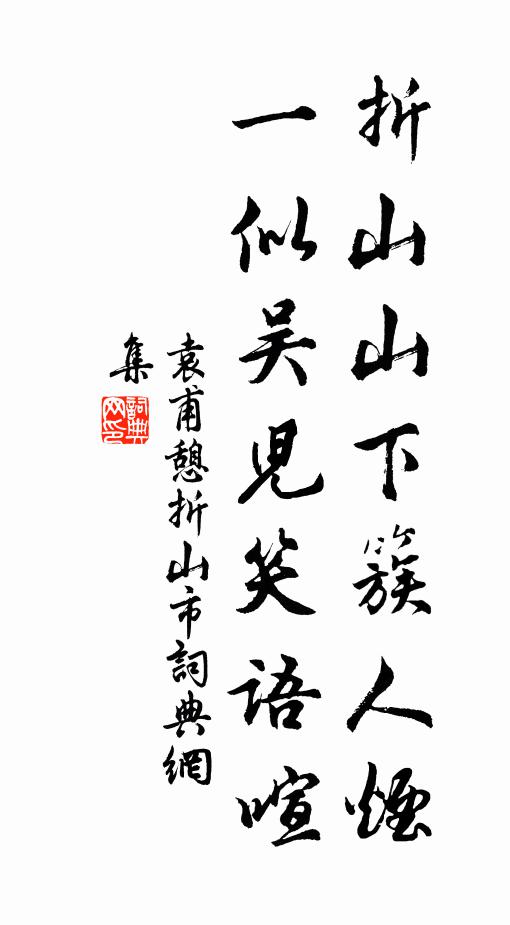 折山山下簇人煙
一似吴兒笑語喧
袁甫憩折山市詞典網
集
詞典网印